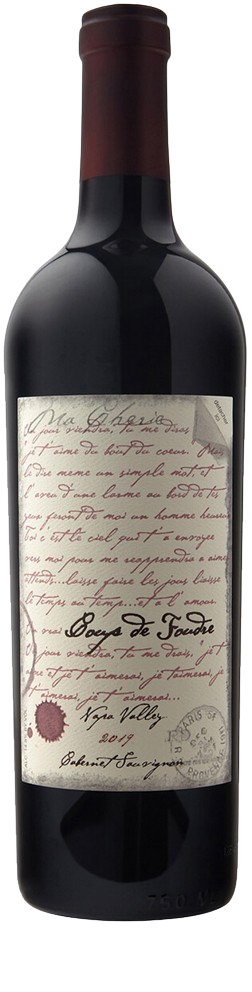 Ma Cherie
détacher
ici
un jour viendra, tu me diras
je t'aime du bout du coeurs. Mais
le dire meme un simple mot et
l'aveu d'une larme au bord de tes
yeux feront de moi un homme heureux
Toi c'est le ciel qui t'a envoyer
vers moi pour me reapprendre a aimer
attends...laisse faire les jours laisse
le temps au temps...et a l'amour.
un vrai Coups de Foudre
jour viendra, tu me drais, je t'
aime et je t'aimerai, je taimerai, je
t'aimerai, je t'aimerai...
Napa Valley
2019
Cabernet Sauvignon
PARIS
PROVENCE
750 ML